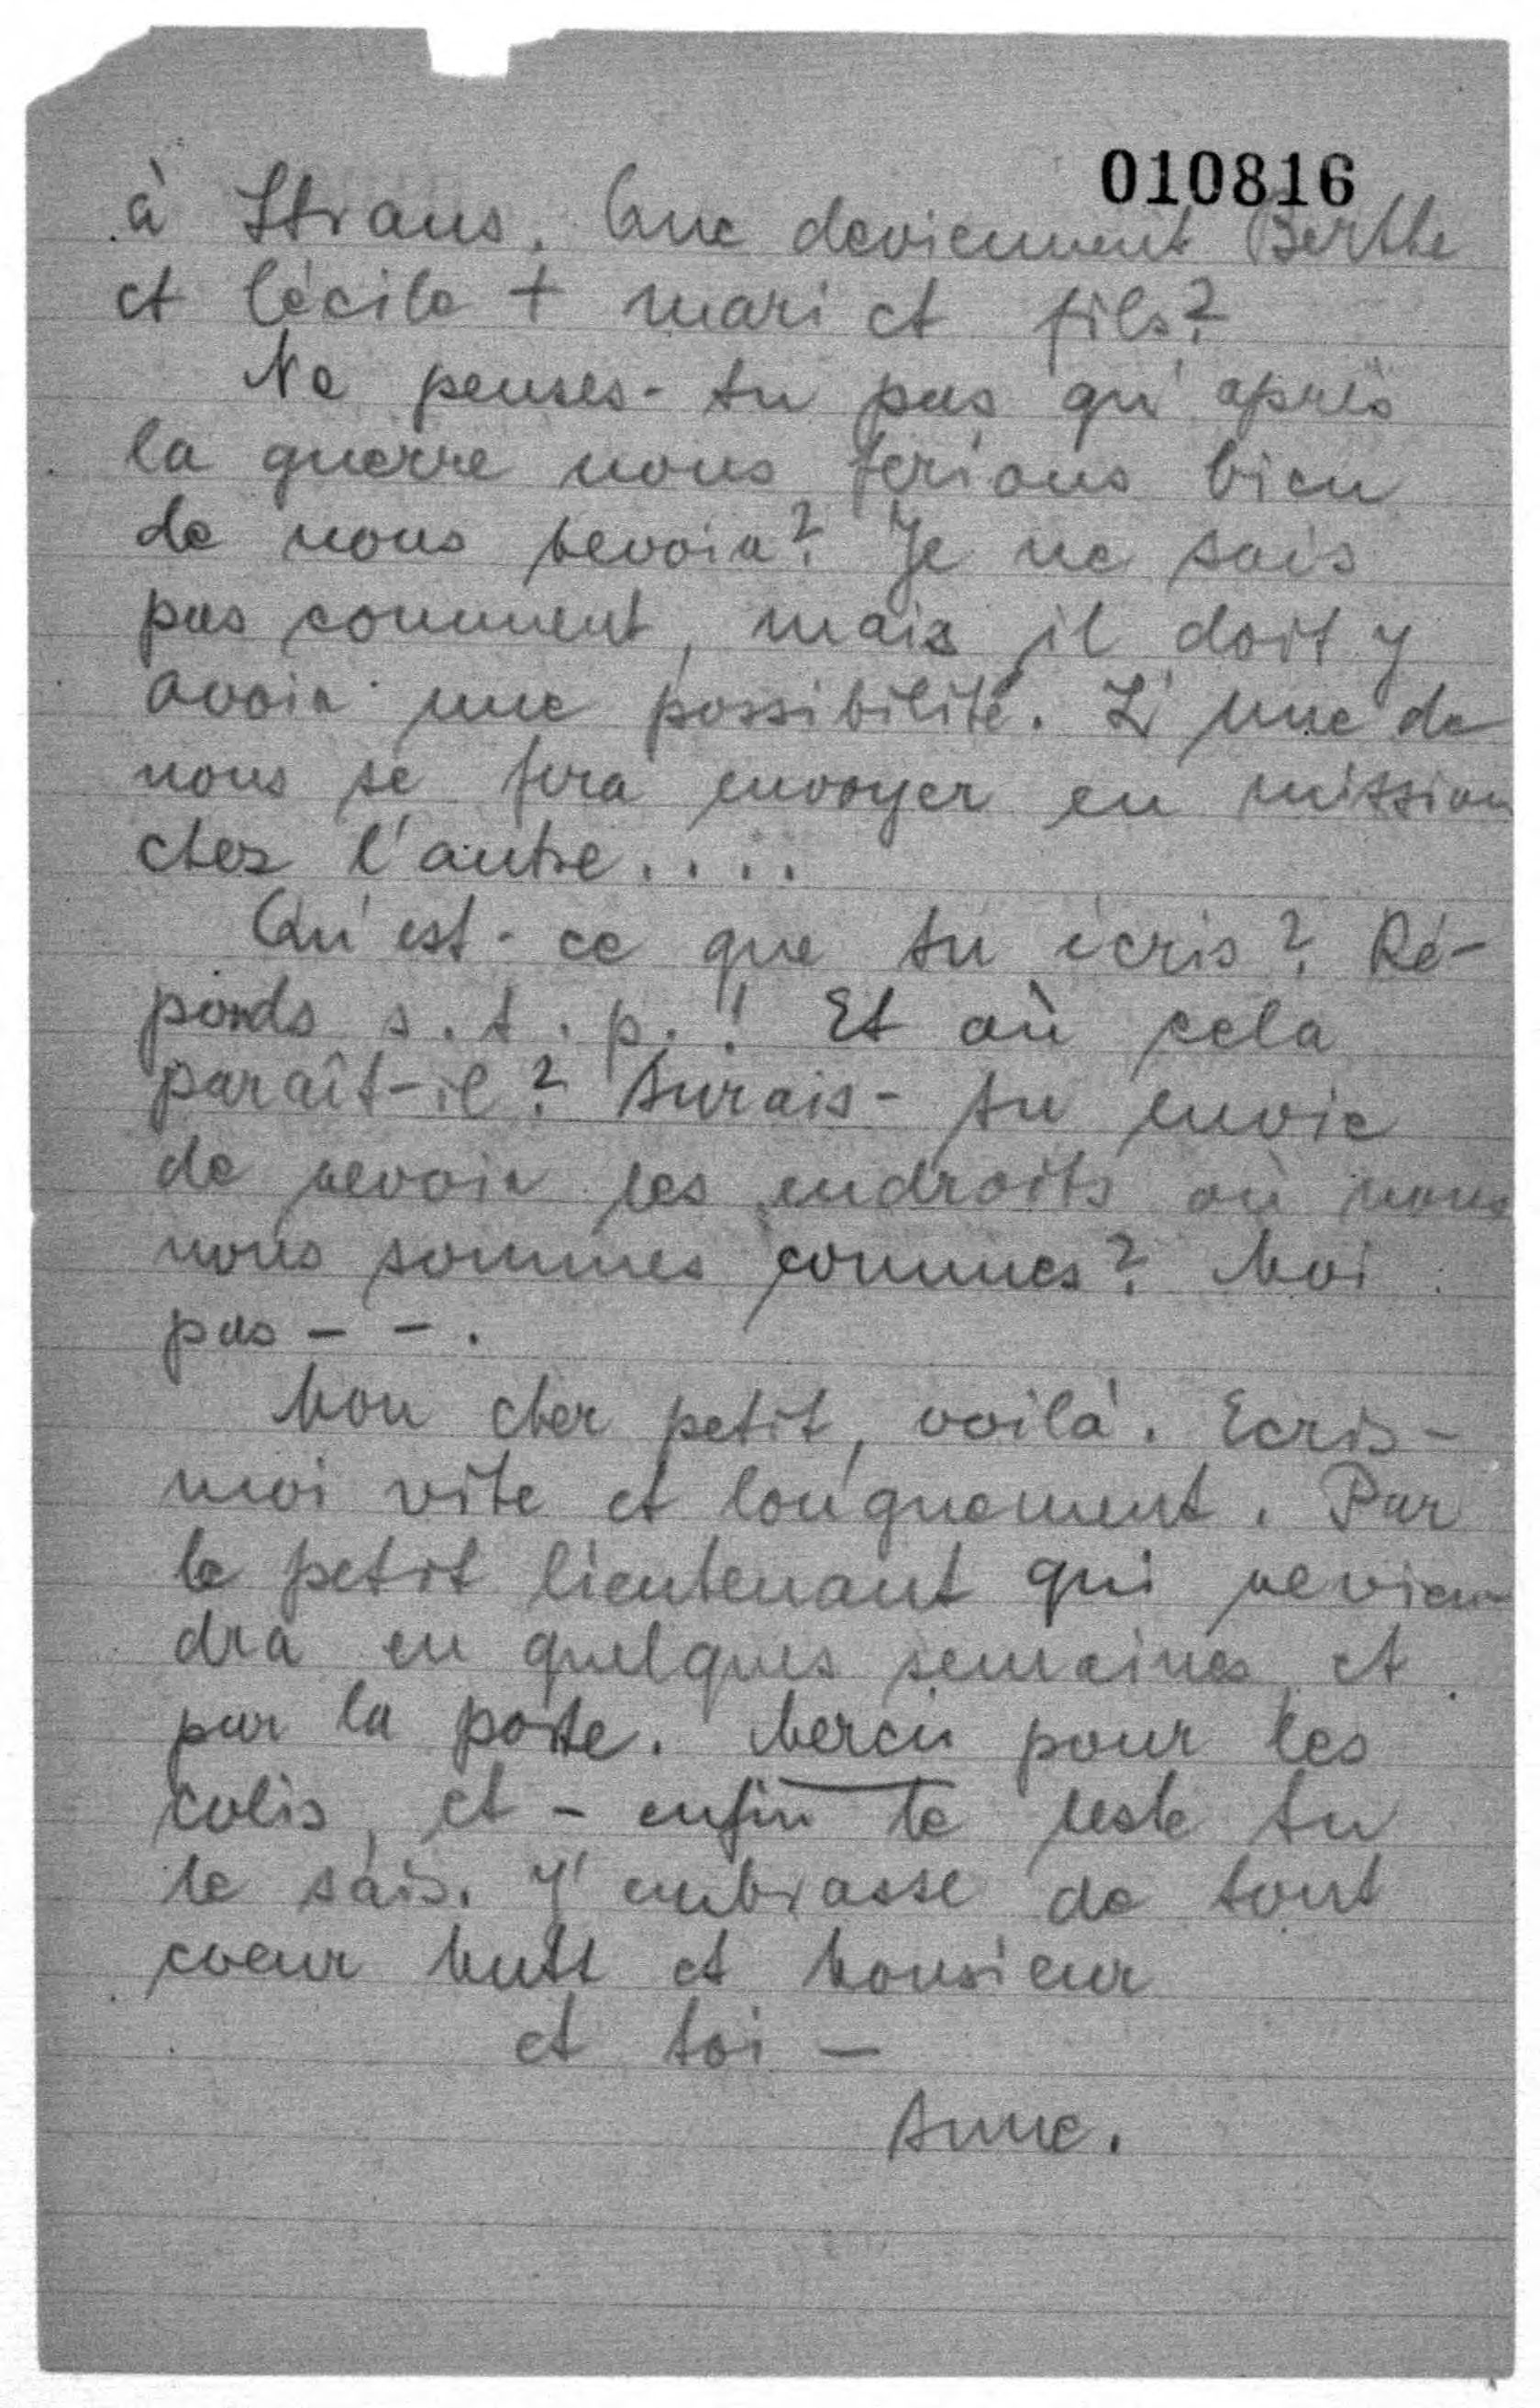 010816
à Straus. Que deviennent Berthe
et Cécile + mari et fils?
Ne penses-tu pas qu'après
la guerre nous ferions bien
de nous revoir? Je ne sais
pas comment, mais il doit y
avoir une possibilité. L'une de
nous se fera envoyer en mission
chez l'autre....
Qu'est-ce que tu écris? Ré-
ponds s.t.p.! Et où cela
paraît-il? Aurais-tu envie
de revoir les endroits où nous
nous sommes connues? Moi
pas - - .
Mon cher petit, voilà. Ecris-
moi vite et longuement. Par
le petit lieutenant qui revien-
dra en quelques semaines et
par la poste. Merci pour les
colis, et - enfin le reste tu
le sais. J'embrasse de tout
coeur Mutt et Monsieur
et toi —
Anne.